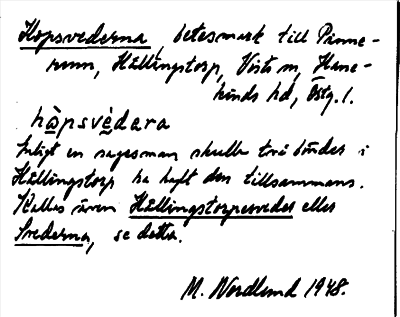 Hopsvederna, betesmark till Pinne-
rum, Hällingstorp, Vists sn, Hane-
kinds hd, Östg. l.
hòpsvèdara
Enligt en sagesman skulle två bönder i
Hällingstorp ha haft den tillsammans.
Kallas även Hällingstorpesvedet eller
Svederna, se detta.
M. Nordlund 1948.